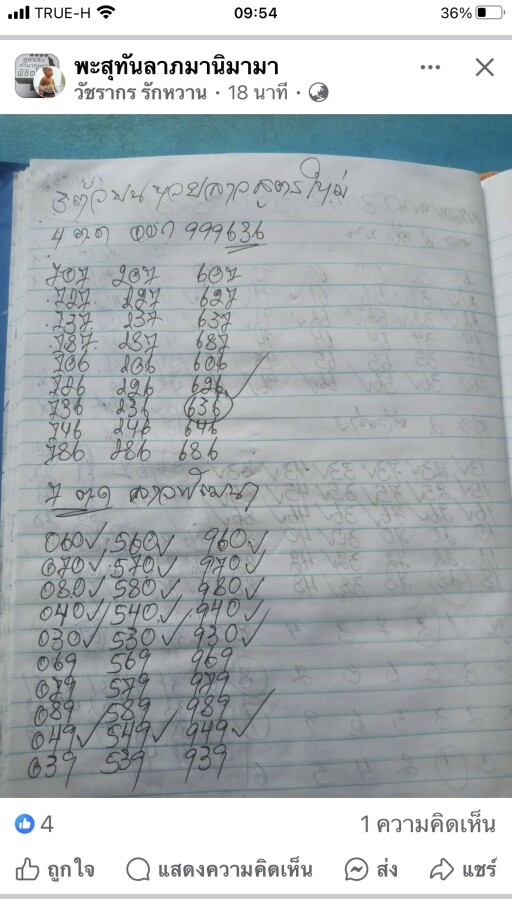 TRUE-H 09:54 36%
พะสุทันลาภมานิมามา
วัชรากร รักหวาน · 18 นาที ·
3ตัวบน หวยลาวสูตรใหม่
4 ตค ออก 999636
707 207 607
727 227 627
737 237 637
787 287 687
706 206 606
726 226 626
736 236 636
746 246 646
786 286 686
7 ตค ลาวพัฒนา
060 560 960
070 570 970
080 580 980
040 540 940
030 530 930
069 569 969
079 579 979
089 589 989
049 549 949
039 539 939
4 1 ความคิดเห็น
ถูกใจ แสดงความคิดเห็น ส่ง แชร์